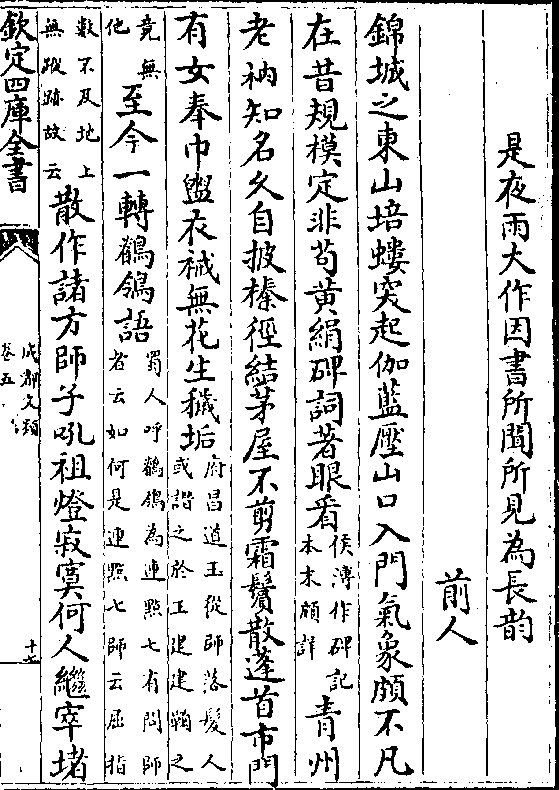 是夜雨大作因書所聞所見為長韵
前人
錦城之東山培螻突起伽藍壓山口入門氣象頗不凡
在昔規模定非苟黄絹碑詞著眼看侯溥作碑記本末頗詳青州
老衲知名久自披榛徑結茅屋不剪霜鬢散蓬首市門
有女奉巾盥衣祴無花生穢垢府昌道王從師落髮人或譖之於王建建鞫之
竟無他至今一轉鶺鴒語蜀人呼鶺鴒為連點七有問師者云如何是連點七師云屈指
數不及地上無蹤跡故云散作諸方師子吼祖燈寂寞何人繼宰堵
欽定四庫全書
成都文類
卷五
十七